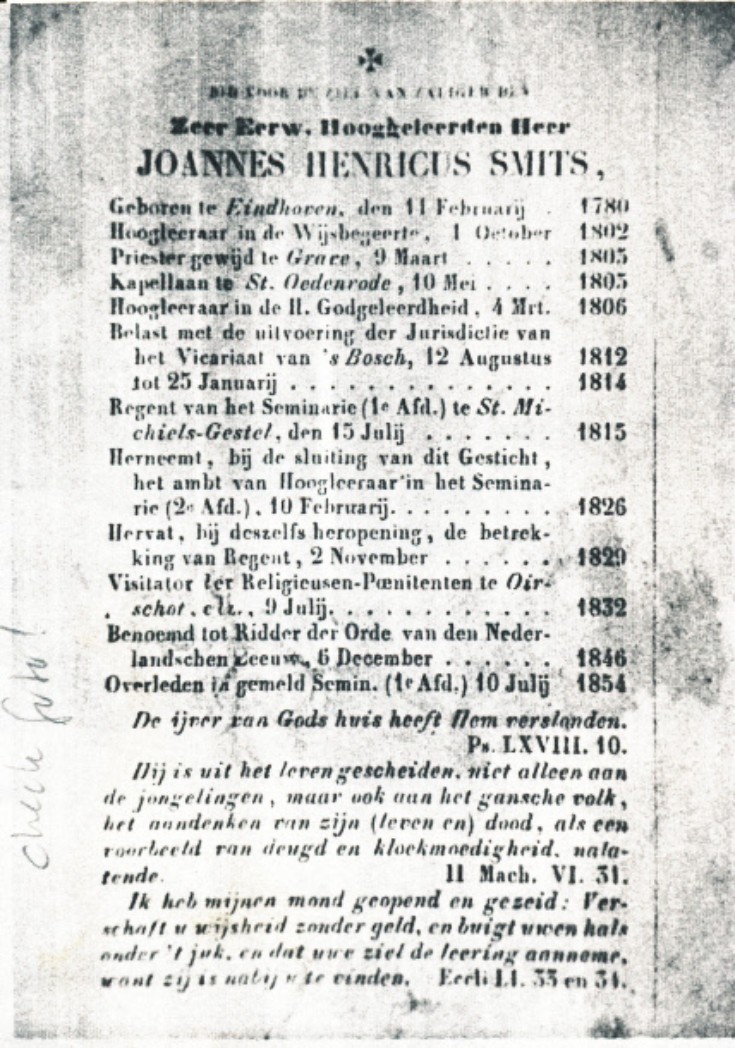 BID VOOR DE ZIEL VAN ZALIGER DEN
Zeer Eerw. Hooggeleerden Heer
JOANNES HENRICUS SMITS,
Geboren te Eindhoven, den 11 Februarij . 1780
Hoogleeraar in de Wijsbegeerte, 1 October 1802
Priester gewijd te Grave, 9 Maart . . . . . 1805
Kapellaan te St. Oedenrode, 10 Mei . . . . 1805
Hoogleeraar in de H. Godgeleerdheid, 4 Mrt. 1806
Belast met de uitvoering der Jurisdictie van
het Vicariaat van 's Bosch, 12 Augustus 1812
tot 25 Januarij . . . . . . . . . . . . . . 1814
Regent van het Seminarie (1e Afd.) te St. Mi-
chiels-Gestel, den 15 Julij . . . . . . . 1815
Herneemt, bij de sluiting van dit Gesticht,
het ambt van Hoogleeraar in het Semina-
rie (2e Afd.), 10 Februarij. . . . . . . . . 1826
Hervat, bij deszelfs heropening, de betrek-
king van Regent, 2 November . . . . . . 1829
Visitator der Religieusen-Pœnitenten te Oir-
schot, etz., 9 Julij. . . . . . . . . . . . 1832
Benoemd tot Ridder der Orde van den Neder-
landschen Leeuw, 6 December . . . . . . 1846
Overleden in gemeld Semin. (1e Afd.) 10 Julij 1854
De ijver van Gods huis heeft Hem verslonden.
Ps. LXVIII. 10.
Hij is uit het leven gescheiden, niet alleen aan
de jongelingen, maar ook aan het gansche volk,
het aandenken van zijn (leven en) dood, als een
voorbeeld van deugd en kloekmoedigheid, nala-
tende. II Mach. VI. 31.
Ik heb mijnen mond geopend en gezeid: Ver-
schaft u wijsheid zonder geld, en buigt uwen hals
onder 't juk, en dat uwe ziel de leering aanneme,
want zij is nabij u te vinden. Eccli LI. 33 en 34.
check foto!